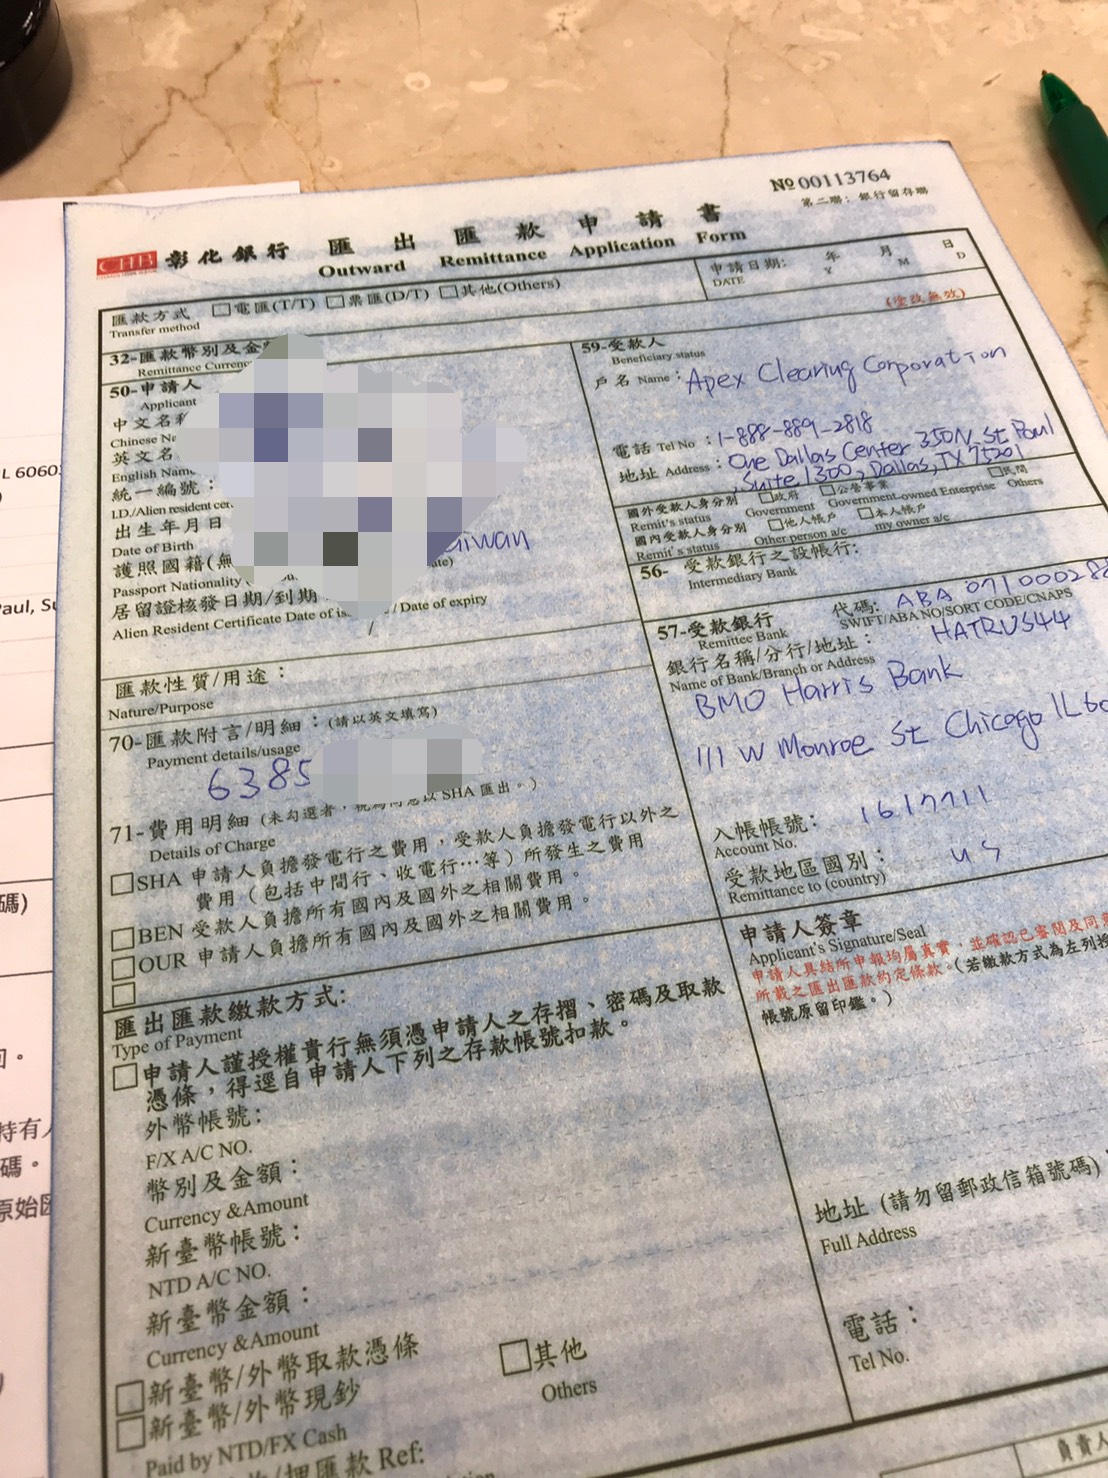 № 00113764
第二聯：銀行留存聯
CHB 彰化銀行 匯出匯款申請書
Outward Remittance Application Form
匯款方式 □電匯(T/T) □票匯(D/T) □其他(Others)
Transfer method
申請日期: 年 月 日
DATE Y M D
(塗改無效)
32-匯款幣別及金
Remittance Curren
50-申請人
Applicant
中文名
Chinese Na
英文名
English Name
統一編號：
I.D./Alien resident cer
出生年月日
Date of Birth
iwan
護照國籍(無
Passport Nationality
居留證核發日期/到期
Alien Resident Certificate Date of is / Date of expiry
/
匯款性質/用途：
Nature/Purpose
70-匯款附言/明細：(請以英文填寫)
Payment details/usage
6385
71-費用明細 (未勾選者，視為同意以 SHA 匯出。)
Details of Charge
□SHA 申請人負擔發電行之費用，受款人負擔發電行以外之
費用（包括中間行、收電行…等）所發生之費用
□BEN 受款人負擔所有國內及國外之相關費用。
□OUR 申請人負擔所有國內及國外之相關費用。
□
匯出匯款繳款方式:
Type of Payment
□申請人謹授權貴行無須憑申請人之存摺、密碼及取款
憑條，得逕自申請人下列之存款帳號扣款。
外幣帳號：
F/X A/C NO.
幣別及金額：
Currency &Amount
新臺幣帳號：
NTD A/C NO.
新臺幣金額：
Currency &Amount
□新臺幣/外幣取款憑條 □其他
□新臺幣/外幣現鈔 Others
Paid by NTD/FX Cash
押匯款 Ref:
59-受款人
Beneficiary status
戶名 Name：Apex Clearing Corporation
電話 Tel No：1-888-889-2818
地址 Address：One Dallas Center 350N. St Paul
, Suite 1300, Dallas, TX 75201
國外受款人身分別 □政府 □公營事業 □民間
Remit's status Government Government-owned Enterprise Others
國內受款人身分別 □他人帳戶 □本人帳戶
Remit's status Other person a/c my owner a/c
56- 受款銀行之設帳行:
Intermediary Bank
57-受款銀行 代碼: ABA 071000288
Remittee Bank SWIFT/ABA NO/SORT CODE/CNAPS
銀行名稱/分行/地址： HATRUS44
Name of Bank/Branch or Address
BMO Harris Bank
111 W Monroe St Chicago IL 60
入帳帳號: 1617711
Account No.
受款地區國別： US
Remittance to (country)
申請人簽章
Applicant's Signature/Seal
申請人具結所申報均屬真實，並確認已審閱及同意
所載之匯出匯款約定條款。(若繳款方式為左列授
帳號原留印鑑。)
地址 (請勿留郵政信箱號碼)
Full Address
電話：
Tel No.
負責人
IL 6060
Paul, Su
碼)
回。
持有人
碼。
原始匯